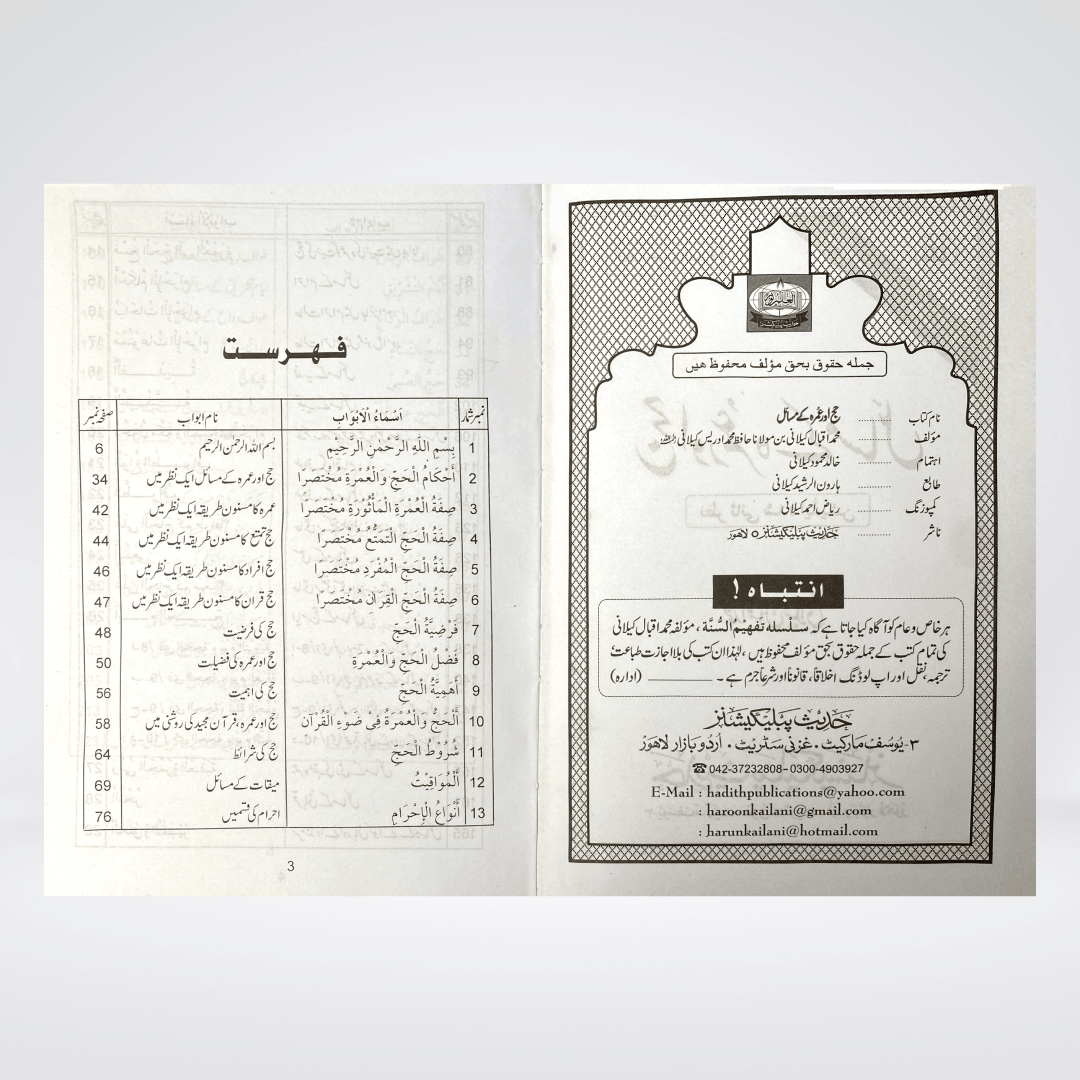 جملہ حقوق بحق مؤلف محفوظ ھیں
نام کتاب ........... حج اور عمرہ کے مسائل
مؤلف ........... محمد اقبال کیلانی بن مولانا حافظ محمد ادریس کیلانی
اہتمام ........... خالد محمود کیلانی
طابع ........... ہارون الرشید کیلانی
کمپوزنگ ........... ریاض احمد کیلانی
ناشر ........... حدیث پبلیکیشنز لاهور
انتباہ !
ہر خاص و عام کو آگاہ کیا جاتا ہے کہ سلسلہ تفہیم السنّة ، مؤلفہ محمد اقبال کیلانی
کی تمام کتب کے جملہ حقوق بحق مؤلف محفوظ ہیں ، لہٰذا ان کتب کی بلا اجازت طباعت
ترجمہ، نقل اور اپ لوڈنگ اخلاقاً، قانوناً اور شرعاً جرم ہے ۔ ــــــــــــ (ادارہ)
حدیث پبلیکیشنز
۳- یوسف مارکیٹ ۰ غزنی سٹریٹ ۰ اردو بازار لاهور
☎ 042-37232808- 0300-4903927
E-Mail : hadithpublications@yahoo.com
: haroonkailani@gmail.com
: harunkailani@hotmail.com
فہرست
نمبر شمار اَسْمَاءُ الْاَبْوَابِ نام ابواب صفحہ نمبر
1 بِسْمِ اللّٰهِ الرَّحْمٰنِ الرَّحِيْمِ بسم اللہ الرحمٰن الرحیم 6
2 أَحْكَامُ الْحَجِّ وَالْعُمْرَةِ مُخْتَصَرًا حج اور عمرہ کے مسائل ایک نظر میں 34
3 صِفَةُ الْعُمْرَةِ الْمَأْثُوْرَةِ مُخْتَصَرًا عمرہ کا مسنون طریقہ ایک نظر میں 42
4 صِفَةُ الْحَجِّ الْتَّمَتُّعِ مُخْتَصَرًا حج تمتع کا مسنون طریقہ ایک نظر میں 44
5 صِفَةُ الْحَجِّ الْمُفْرَدِ مُخْتَصَرًا حج افراد کا مسنون طریقہ ایک نظر میں 46
6 صِفَةُ الْحَجِّ الْقِرَانِ مُخْتَصَرًا حج قران کا مسنون طریقہ ایک نظر میں 47
7 فَرْضِيَّةُ الْحَجِّ حج کی فرضیت 48
8 فَضْلُ الْحَجِّ وَالْعُمْرَةِ حج اور عمرہ کی فضیلت 50
9 أَهَمِيَّةُ الْحَجِّ حج کی اہمیت 56
10 أَلْحَجُّ وَالْعُمْرَةُ فِىْ ضَوْءِ الْقُرْآنِ حج اور عمرہ، قرآن مجید کی روشنی میں 58
11 شُرُوْطُ الْحَجِّ حج کی شرائط 64
12 أَلْمَوَاقِيْتُ میقات کے مسائل 69
13 أَنْوَاعُ الْإِحْرَامِ احرام کی قسمیں 76
3